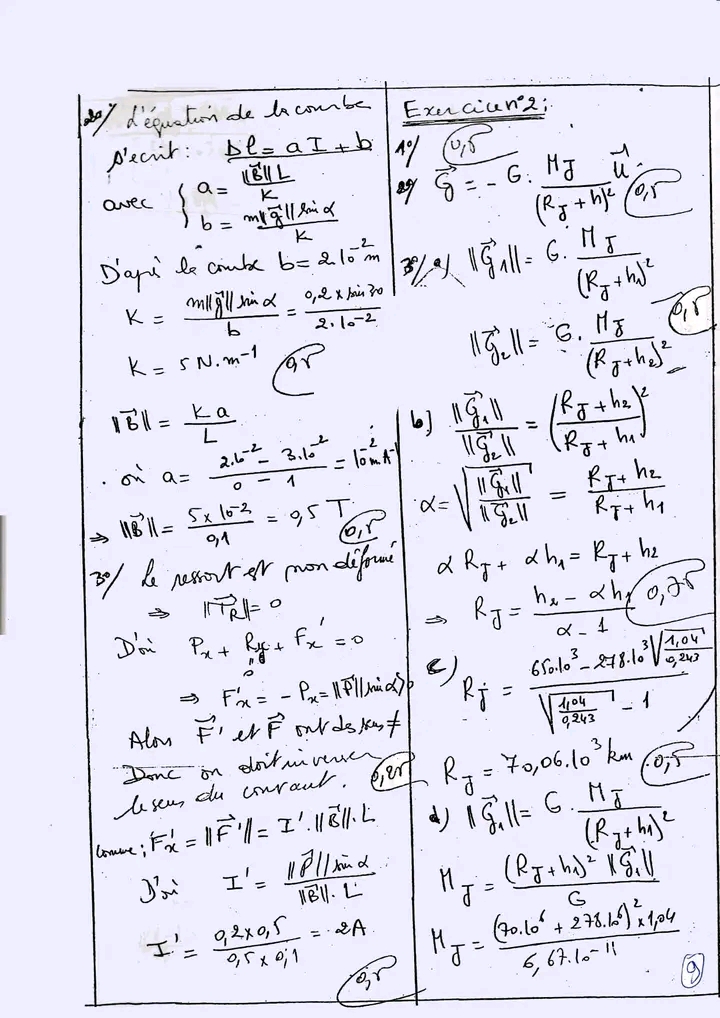 2°/ L'équation de la courbe
s'ecrit : Δl = a I + b
avec { a = ||B⃗|| L / K
b = m||g⃗|| sin α / K
D'après la courbe b = 2.10⁻² m
K = m||g⃗|| sin α / b = 0,2 x sin 30 / 2.10⁻²
K = 5 N.m⁻¹ 0,5
||B⃗|| = K a / L
où a = 2.10⁻² - 3.10⁻² / 0 - 1 = 10⁻² m A⁻¹
⇒ ||B⃗|| = 5 x 10⁻² / 0,1 = 0,5 T 0,5
3°/ Le ressort est non déformé
⇒ ||T⃗R|| = 0
D'où Px + Rx + Fx' = 0
0
⇒ F'x = - Px = ||P⃗|| sin α > 0
Alors F⃗' et F⃗ ont des sens ≠
Donc on doit inverser
le sens du courant. 0,25
Comme ; F'x = ||F⃗'|| = I'. ||B⃗||. L
D'où I' = ||P⃗|| sin α / ||B⃗||. L
I' = 0,2 x 0,5 / 0,5 x 0,1 = 2A
0,5
Exercice n°2 :
1°/ 0,5
2°/ G⃗ = - G. MJ / (RJ + h)² u⃗ 0,5
3°/ a) ||G⃗1|| = G. MJ / (RJ + h1)²
0,5
||G⃗2|| = G. MJ / (RJ + h2)²
b) ||G⃗1|| / ||G⃗2|| = (RJ + h2 / RJ + h1)²
α = √(||G⃗1|| / ||G⃗2||) = RJ + h2 / RJ + h1
α RJ + αh1 = RJ + h2
⇒ RJ = h2 - αh1 / α - 1 0,75
c) RJ = 650.10³ - 278.10³ √(1,04 / 0,243) / √(1,04 / 0,243) - 1
RJ = 70,06.10³ km 0,5
d) ||G⃗1|| = G. MJ / (RJ + h1)²
MJ = (RJ + h1)² ||G⃗1|| / G
MJ = (70.10⁶ + 278.10⁶)² x 1,04 / 6,67.10⁻¹¹
9